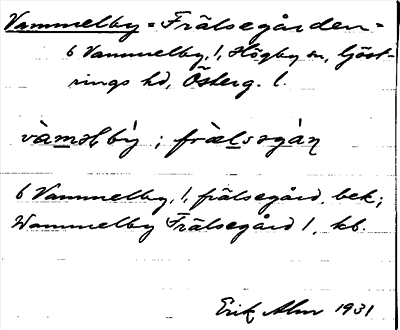 Vammelby = Frälsegården =
6 Vammelby, 1, Högby sn, Göst-
rings hd, Österg. l.
vàməlby̓ ; frælsəgàṇ
6 Vammelby, 1, frälsegård, bek;
Wammelby Frälsegård 1, kb.
Erik Alm 1931